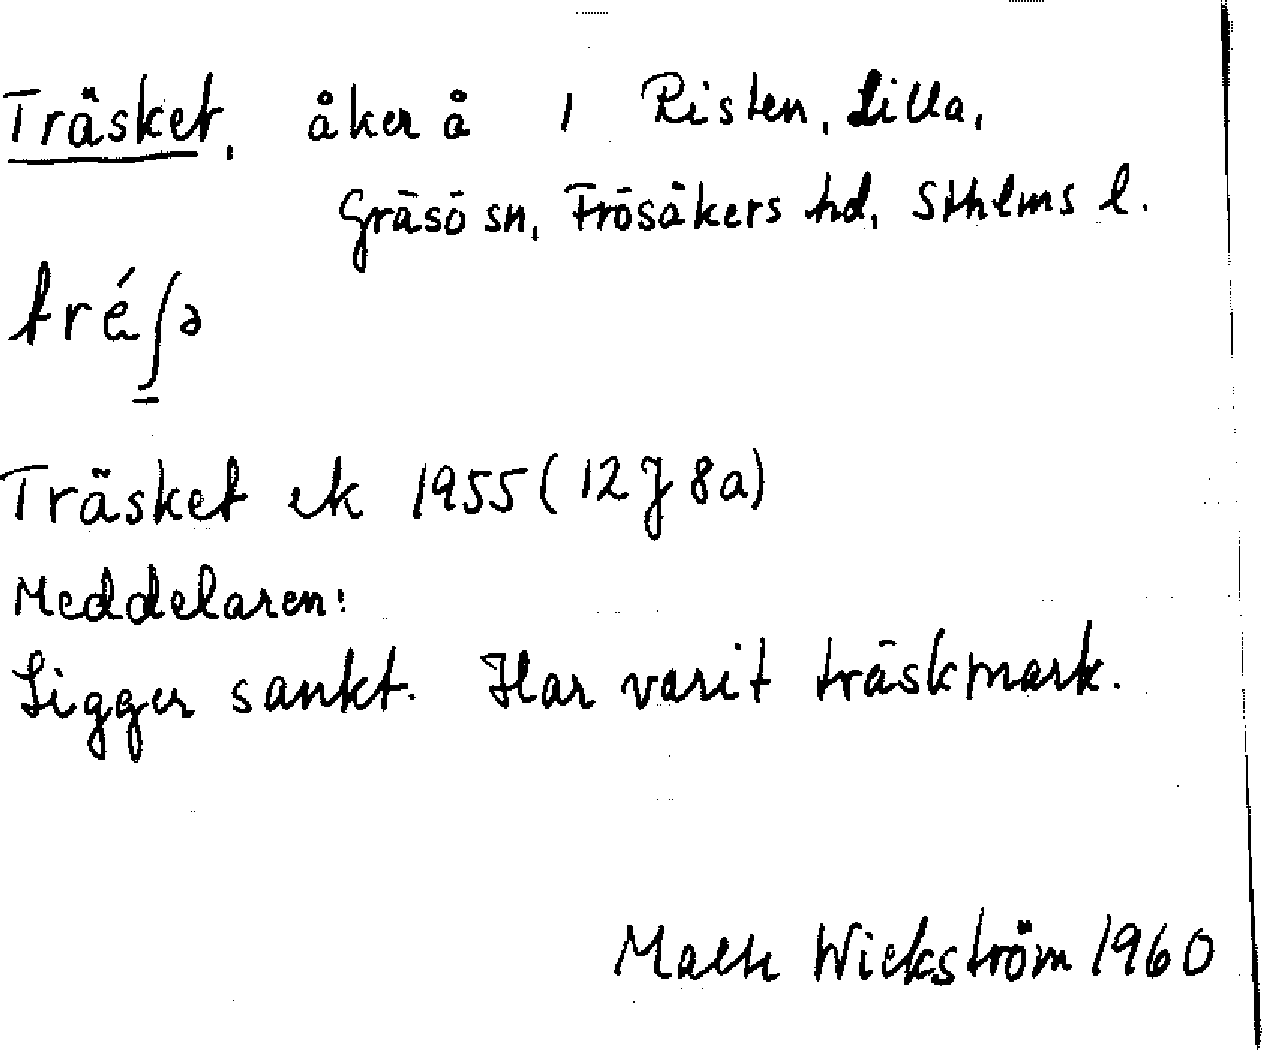 Träsket, åker å 1 Risten, Lilla,
Gräsö sn, Frösåkers hd, Sthlms l.
tré̱ʃə
Träsket ek 1955 (12 J 8a)
Meddelaren:
Ligger sankt. Har varit träskmark.
Wickström 1960